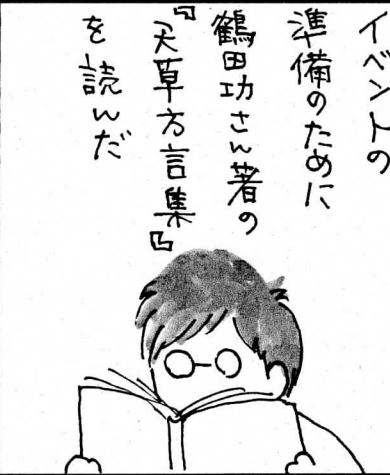 イベントの
準備のために
鶴田功さん著の
『天草方言集』
を読んだ